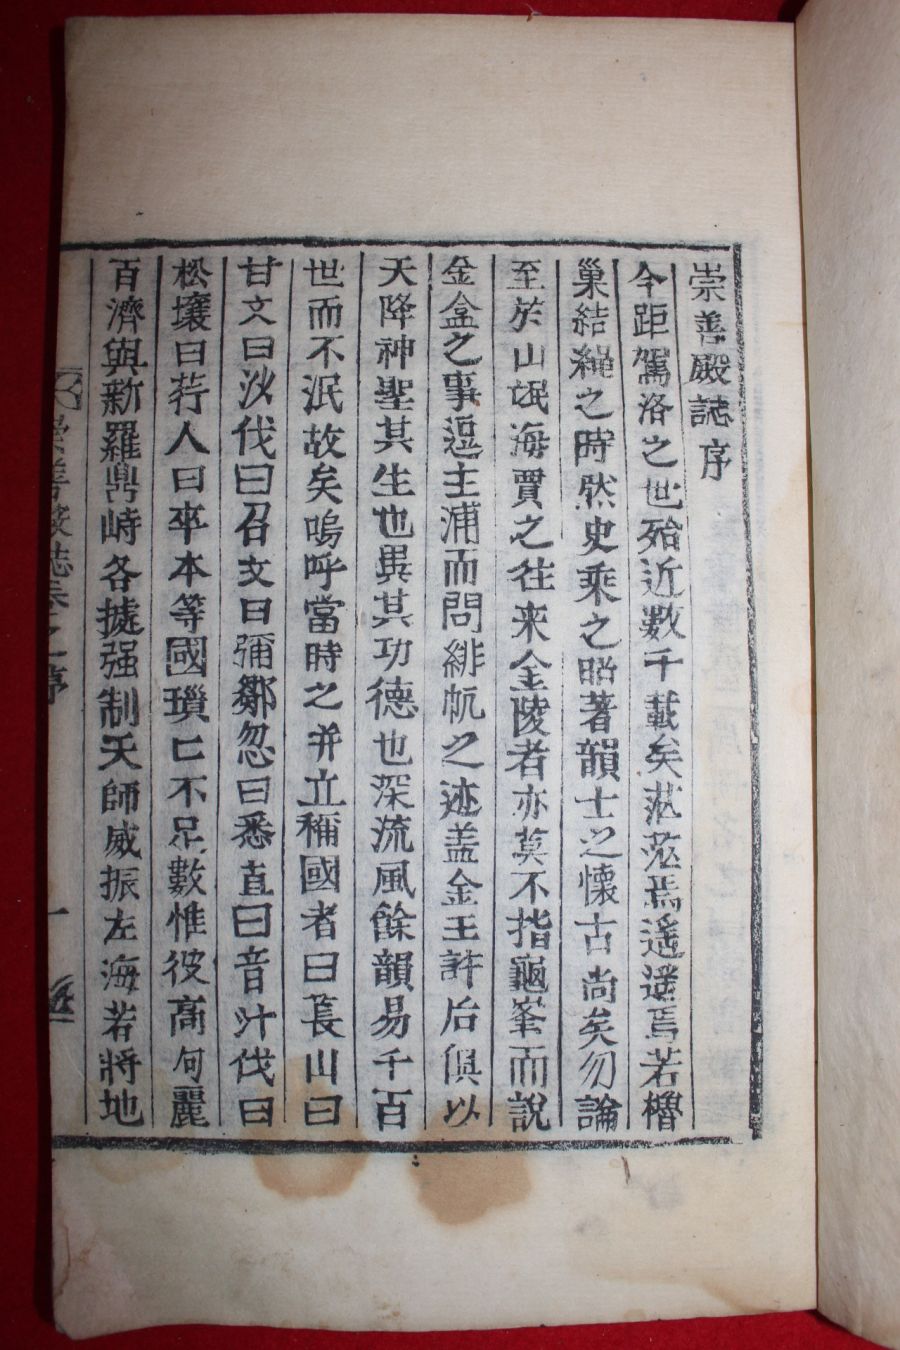 崇善殿誌序
今距駕洛之世殆近數千載矣茫茫焉遥遥焉若櫓
巢結繩之時然史乘之昭著韻士之懷古尚矣勿論
至於山氓海賈之往来金陵者亦莫不指龜峯而說
金盒之事逗主浦而問緋帆之迹盖金王許后俱以
天降神聖其生也異其功德也深流風餘韻易千百
世而不泯故矣嗚呼當時之并立稱國者曰萇山曰
甘文曰沙伐曰召文曰彌鄒忽曰悉直曰音汁伐曰
松壤曰荇人曰卒本等國瑣㠯不足數惟彼高句麗
百濟與新羅鼎峙各據强制天師威振左海若將地
崇善殿誌卷之序
一